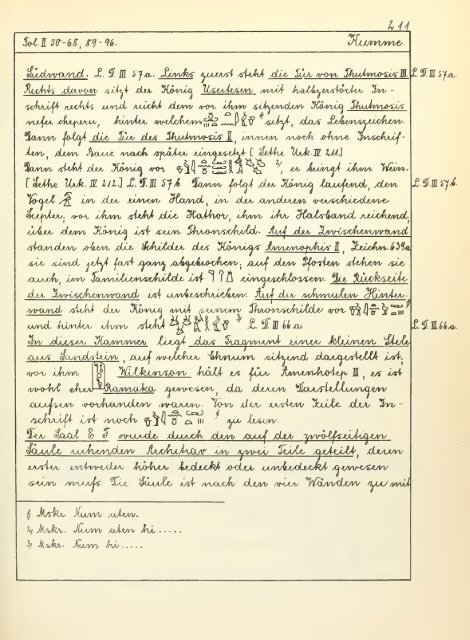 211
Fol. II 30-68, 89-96. Kumme
Südwand. L. D. III 57a. Links zuerst steht die Tür von Thutmosis III. L. D. III 57a.
Rechts davon sitzt der König Usertesen mit halbzerstörter In-
schrift rechts und reicht dem vor ihm sitzenden König Thutmosis
nefer cheperu, hinter welchem sitzt, das Lebenszeichen.
Dann folgt die Tür des Thutmosis II, innen noch ohne Inschrif-
ten, dem Baue nach später eingesetzt [Sethe Urk. IV 211.]
Dann steht der König vor 2), er bringt ihm Wein.
[Sethe Urk. IV 212.] L. D. III 57b. Dann folgt der König laufend, den L. D. III 57b.
Vogel in der einen Hand, in der anderen verschiedene
Scepter; vor ihm steht die Hathor, ihm ihr Halsband reichend,
über dem König ist sein Thronschild. Auf der Zwischenwand
standen oben die Schilde des Königs Amenophis II, Zeichn. 639a
sie sind jetzt fast ganz abgebrochen; auf den Pfosten stehen sie
auch, im Familienschilde ist eingeschlossen. Die Rückseite
der Zwischenwand ist unbeschrieben. Auf der schmalen Hinter-
wand steht der König mit seinem Thronschilde vor
und hinter ihm steht 3) L. D. III 66.a. L. D. III 66.a.
In dieser Kammer liegt das Fragment einer kleinen Stele
aus Sandstein, auf welcher Chnum sitzend dargestellt ist,
vor ihm Wilkinson hält es für Amenhotep III, es ist
wohl eher Ramaka gewesen, da deren Darstellungen
aufsen vorhanden waren. Von der ersten Zeile der In-
schrift ist noch zu lesen.
Der Saal E F wurde durch den auf der zwölfseitigen
Säule ruhenden Architrav in zwei Teile geteilt, deren
erster entweder höher bedeckt oder unbedeckt gewesen
sein mufs. Die Säule ist nach den vier Wänden zu mit
1) Mskr. Num aten.
2) Mskr. Num aten hi.....
3) Mskr. Num hi.....